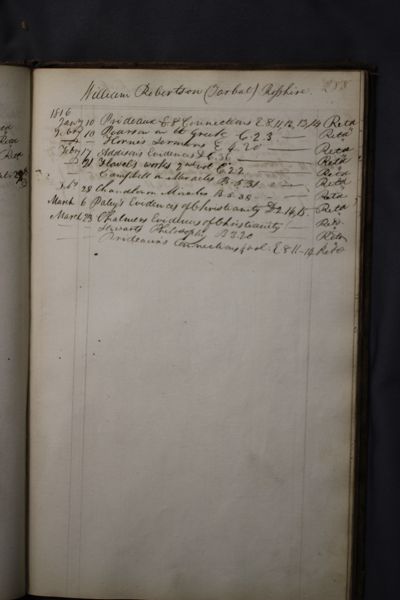 288
William Robertson (Tarbat) Rosshire.
1816
Jany 10 Prideaux E8 Connections E.8.11,12,13,14 Retd
Feby 10 Pearson on the Creed C.2.3 — Retd
Horne's Sermons E.4.20 — Retd
Feby 17 Addison's Evidences D.E.36 — Retd
21 Flavel's works 2d vol C.2.2 Retd
Campbell on Miracles B.5.31 — Retd
28 Chandler on Miracles B.5.38 — Retd
March 6 Paley's Evidences of Christianity D.2.14,15 — Retd
March 23 Chalmers Evidences of Christianity — Retd
Stewarts Philosophy B.3.20 — Retd
Prideaux's Connections 4 vol. E 8 11-14 Retd